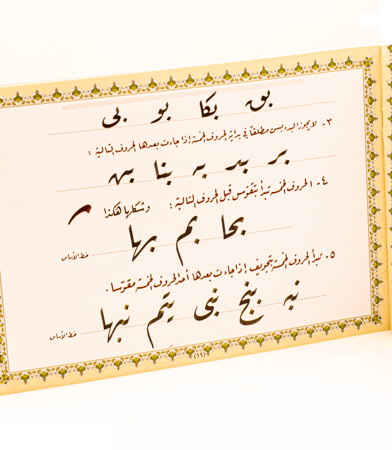 بق بكا بو بى
٣ـ لا يجوز البدء بسن مطلقا في بداية الحروف الخمسة إذا جاءت بعدها الحروف التالية :
بر بد به بنا
٤ـ الحروف الخمسة تبدأ بتقوس قبل الحروف التالية : وشكلها هكذا
بحا بم بها خط الأساس
٥ـ تبدأ الحروف الخمسة بتجويف إذا جاءت بعدها أحد الحروف الخمسة مقوسا .
نبه بنج نبى يتم نبها خط الأساس
(١٩)